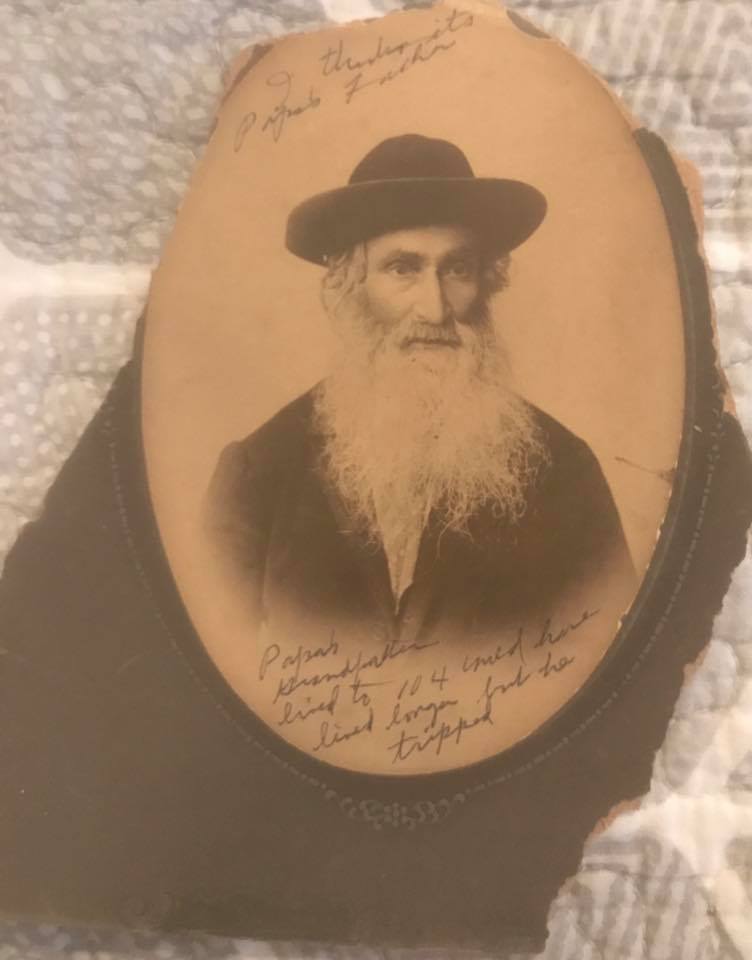 I think its
Papa's Father
Papa's
Grandfather
lived to 104 could have
lived longer but he
tripped